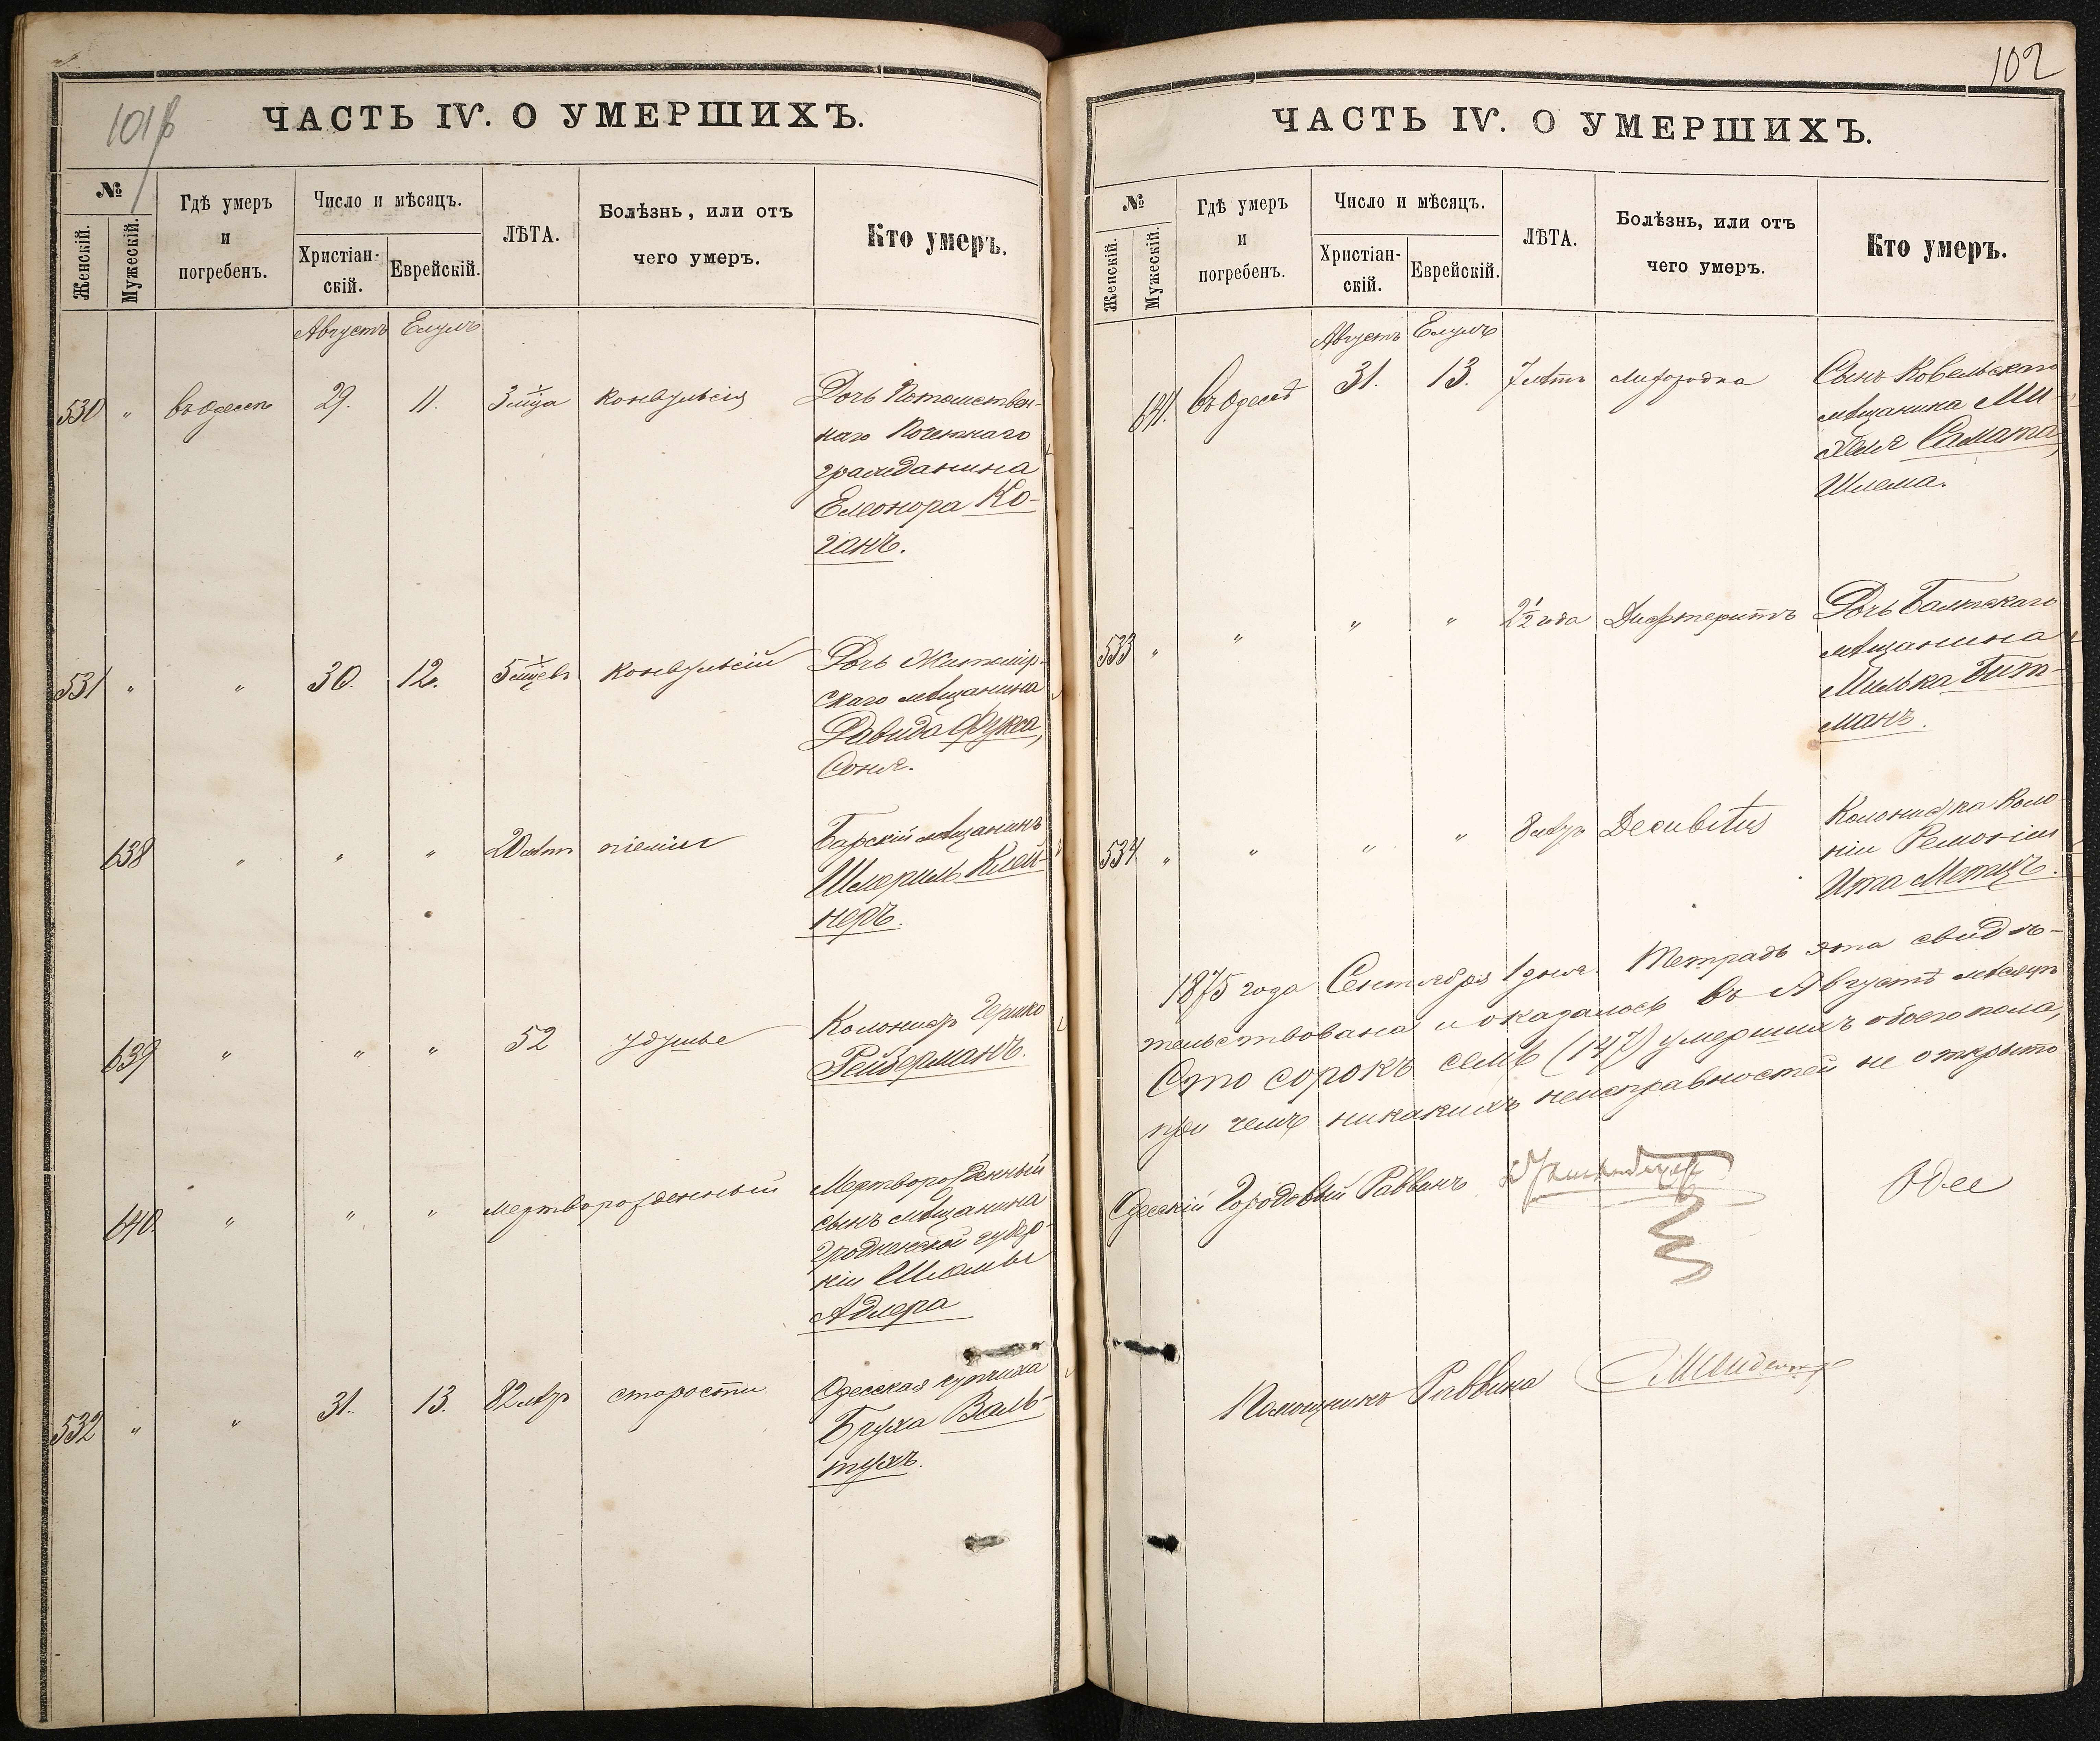 101
ЧАСТЬ IV. О УМЕРШИХЪ.
№
Женскій.
Мужескій.
Гдѣ умеръ
и
погребенъ.
Число и мѣсяцъ.
Христіан-
скій.
Еврейскій.
ЛѢТА.
Болѣзнь, или отъ
чего умеръ.
Кто умеръ.
Августъ Елулъ
530 " въ Одессѣ 29. 11. 3 м-ца конвульсія Дочь Потомствен-
наго Почетнаго
гражданина
Елеонора Ко-
ганъ.
531 " " 30. 12. 5 м-цевъ конвульсіи Дочь Житомір-
скаго мѣщанина
Давида Фукса,
Соня.
638 " " " 20 лѣтъ піемія Барскій мѣщанинъ
Шмериль Клей-
неръ.
639 " " " 52 удушье Колонистъ Гершко
Рейдерманъ.
640 " " " мертворожденный Мертворожденный
сынъ мѣщанина
Гродненской губер-
ніи Шломы
Адлера
532 " " 31. 13. 82 лѣтъ старости Одесская купчиха
Бруха Валь-
тухъ.
102
ЧАСТЬ IV. О УМЕРШИХЪ.
№
Женскій.
Мужескій.
Гдѣ умеръ
и
погребенъ.
Число и мѣсяцъ.
Христіан-
скій.
Еврейскій.
ЛѢТА.
Болѣзнь, или отъ
чего умеръ.
Кто умеръ.
Августъ Елулъ
641. Въ Одессѣ 31. 13. 7 лѣтъ лихорадка Сынъ Ковельскаго
мѣщанина Ми-
хеля Самата,
Шлема.
533 " " " " 2½ года Дифтеритъ Дочь Балтскаго
мѣщанина
Милька Гит-
манъ.
534 " " " " 8 лѣтъ Decubitus Колонистка Коло-
ніи Ремоніи
Ита Мотцъ.
1875 года Сентября 1 дня. Тетрадь эта свидѣ-
тельствована и оказалось въ Августѣ мѣсяцѣ
Сто сорокъ семь (147) умершихъ обоего пола,
при чемъ никакихъ неисправностей не открыто
Одесскій Городовый Раввинъ
Одес
Помощникъ Раввина